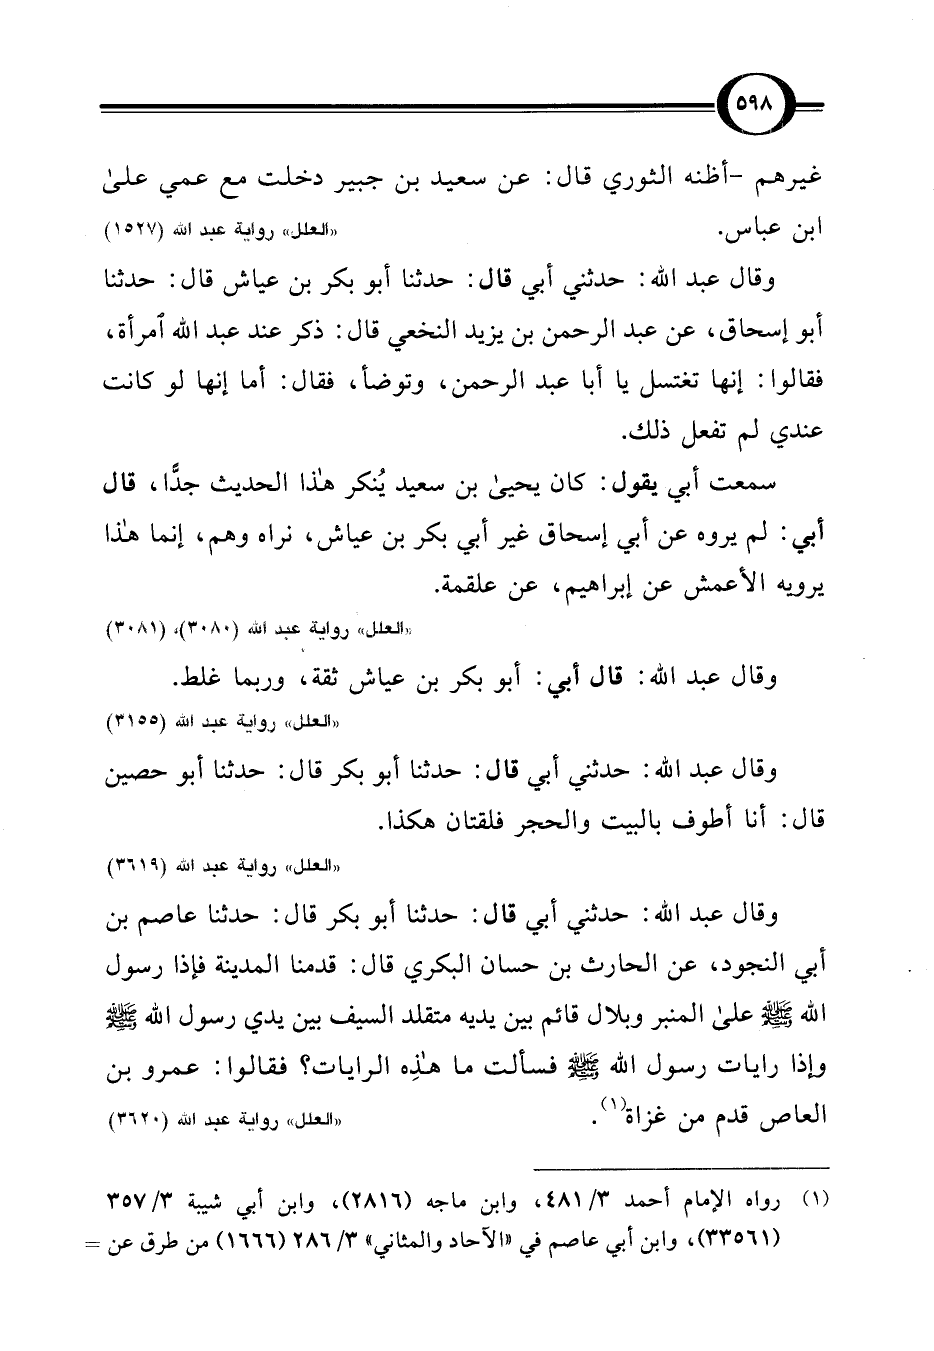 ٥٩٨
غيرهم -أظنه الثوري قال: عن سعيد بن جبير دخلت مع عمي علىٰ
ابن عباس. «العلل» رواية عبد الله (١٥٢٧)
وقال عبد الله: حدثني أبي قال: حدثنا أبو بكر بن عياش قال: حدثنا
أبو إسحاق، عن عبد الرحمن بن يزيد النخعي قال: ذكر عند عبد الله ٱمرأة،
فقالوا: إنها تغتسل يا أبا عبد الرحمن، وتوضأ، فقال: أما إنها لو كانت
عندي لم تفعل ذلك.
سمعت أبي يقول: كان يحيىٰ بن سعيد يُنكر هٰذا الحديث جدًّا، قال
أبي: لم يروه عن أبي إسحاق غير أبي بكر بن عياش، نراه وهم، إنما هٰذا
يرويه الأعمش عن إبراهيم، عن علقمة.
«العلل» رواية عبد الله (٣٠٨٠)، (٣٠٨١)
وقال عبد الله: قال أبي: أبو بكر بن عياش ثقة، وربما غلط.
«العلل» رواية عبد الله (٣١٥٥)
وقال عبد الله: حدثني أبي قال: حدثنا أبو بكر قال: حدثنا أبو حصين
قال: أنا أطوف بالبيت والحجر فلقتان هكذا.
«العلل» رواية عبد الله (٣٦١٩)
وقال عبد الله: حدثني أبي قال: حدثنا أبو بكر قال: حدثنا عاصم بن
أبي النجود، عن الحارث بن حسان البكري قال: قدمنا المدينة فإذا رسول
الله ﷺ علىٰ المنبر وبلال قائم بين يديه متقلد السيف بين يدي رسول الله ﷺ
وإذا رايات رسول الله ﷺ فسألت ما هٰذِه الرايات؟ فقالوا: عمرو بن
العاص قدم من غزاة(١). «العلل» رواية عبد الله (٣٦٢٠)
(١) رواه الإمام أحمد ٣/ ٤٨١، وابن ماجه (٢٨١٦)، وابن أبي شيبة ٣/ ٣٥٧
(٣٣٥٦١)، وابن أبي عاصم في «الآحاد والمثاني» ٣/ ٢٨٦ (١٦٦٦) من طرق عن =